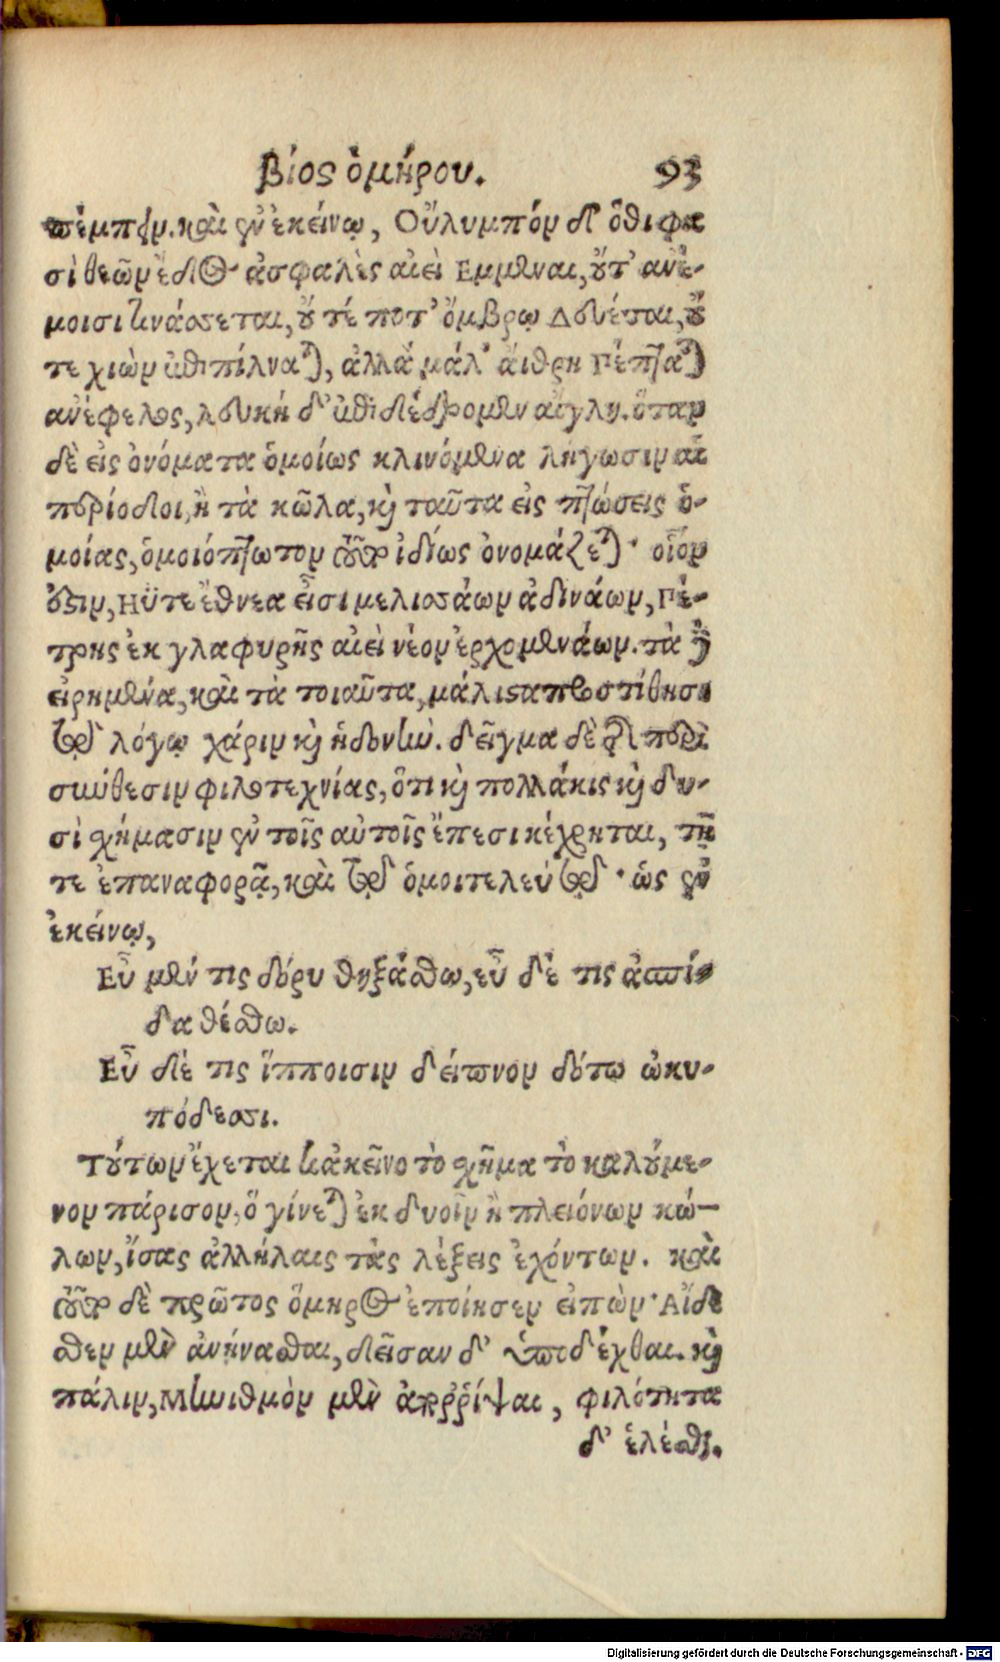 βίος ὁμήρου. 93
πέμπειν. καὶ ἐν ἐκείνῳ, Οὔλυμπόν δ' ὅθι φα
σὶ θεῶν ἕδος ἀσφαλὲς αἰεὶ Εμμεναι, οὔτ' ἀνέ-
μοισι τινάσσεται, οὔτέ ποτ' ὄμβρῳ Δεύεται, οὔ
τε χιὼν ἐπιπίλναται, ἀλλὰ μάλ' αἴθρη Πέπταται
ἀνέφελος, λευκή δ' ἐπιδέδρομεν αἴγλη. ὅταν
δὲ εἰς ὀνόματα ὁμοίως κλινόμενα λήγωσιν αἱ
περίοδοι, ἢ τὰ κῶλα, καὶ ταῦτα εἰς πτώσεις ὁ-
μοίας, ὁμοιόπτωτον τοῦτο ἰδίως ὀνομάζεται· οἷόν
ἐστιν, Ηΰτε ἔθνεα εἶσι μελισσάων ἀδινάων, Πέ-
τρης ἐκ γλαφυρῆς αἰεὶ νέον ἐρχομενάων. τὰ δὲ
εἰρημένα, καὶ τὰ τοιαῦτα, μάλιστα προστίθησι
τῷ λόγῳ χάριν καὶ ἡδονήν. δεῖγμα δὲ τῆς περὶ
σύνθεσιν φιλοτεχνίας, ὅτι καὶ πολλάκις καὶ δυ-
σὶ σχήμασιν ἐν τοῖς αὐτοῖς ἔπεσι κέχρηται, τῇ
τε ἐπαναφορᾷ, καὶ τῷ ὁμοιτελεύτῳ· ὡς ἐν
ἐκείνῳ,
Εὖ μέν τις δόρυ θηξάσθω, εὖ δέ τις ἀσπί-
δα θέσθω.
Εὖ δέ τις ἵπποισιν δεῖπνον δότω ὠκυ-
πόδεσσι.
Τούτων ἔχεται κἀκεῖνο τὸ σχῆμα τὸ καλούμε-
νον πάρισον, ὃ γίνεται ἐκ δυοῖν ἢ πλειόνων κώ-
λων, ἴσας ἀλλήλαις τὰς λέξεις ἐχόντων. καὶ
τοῦτο δὲ πρῶτος ὅμηρος ἐποίησεν εἰπών· Αἴδε
σθεν μὲν ἀνήνασθαι, δεῖσαν δ' ὑποδέχθαι. καὶ
πάλιν, Μηνιθμὸν μὲν ἀπορρίψαι, φιλότητα
δ' ἑλέσθαι.
Digitalisierung gefördert durch die Deutsche Forschungsgemeinschaft - DFG